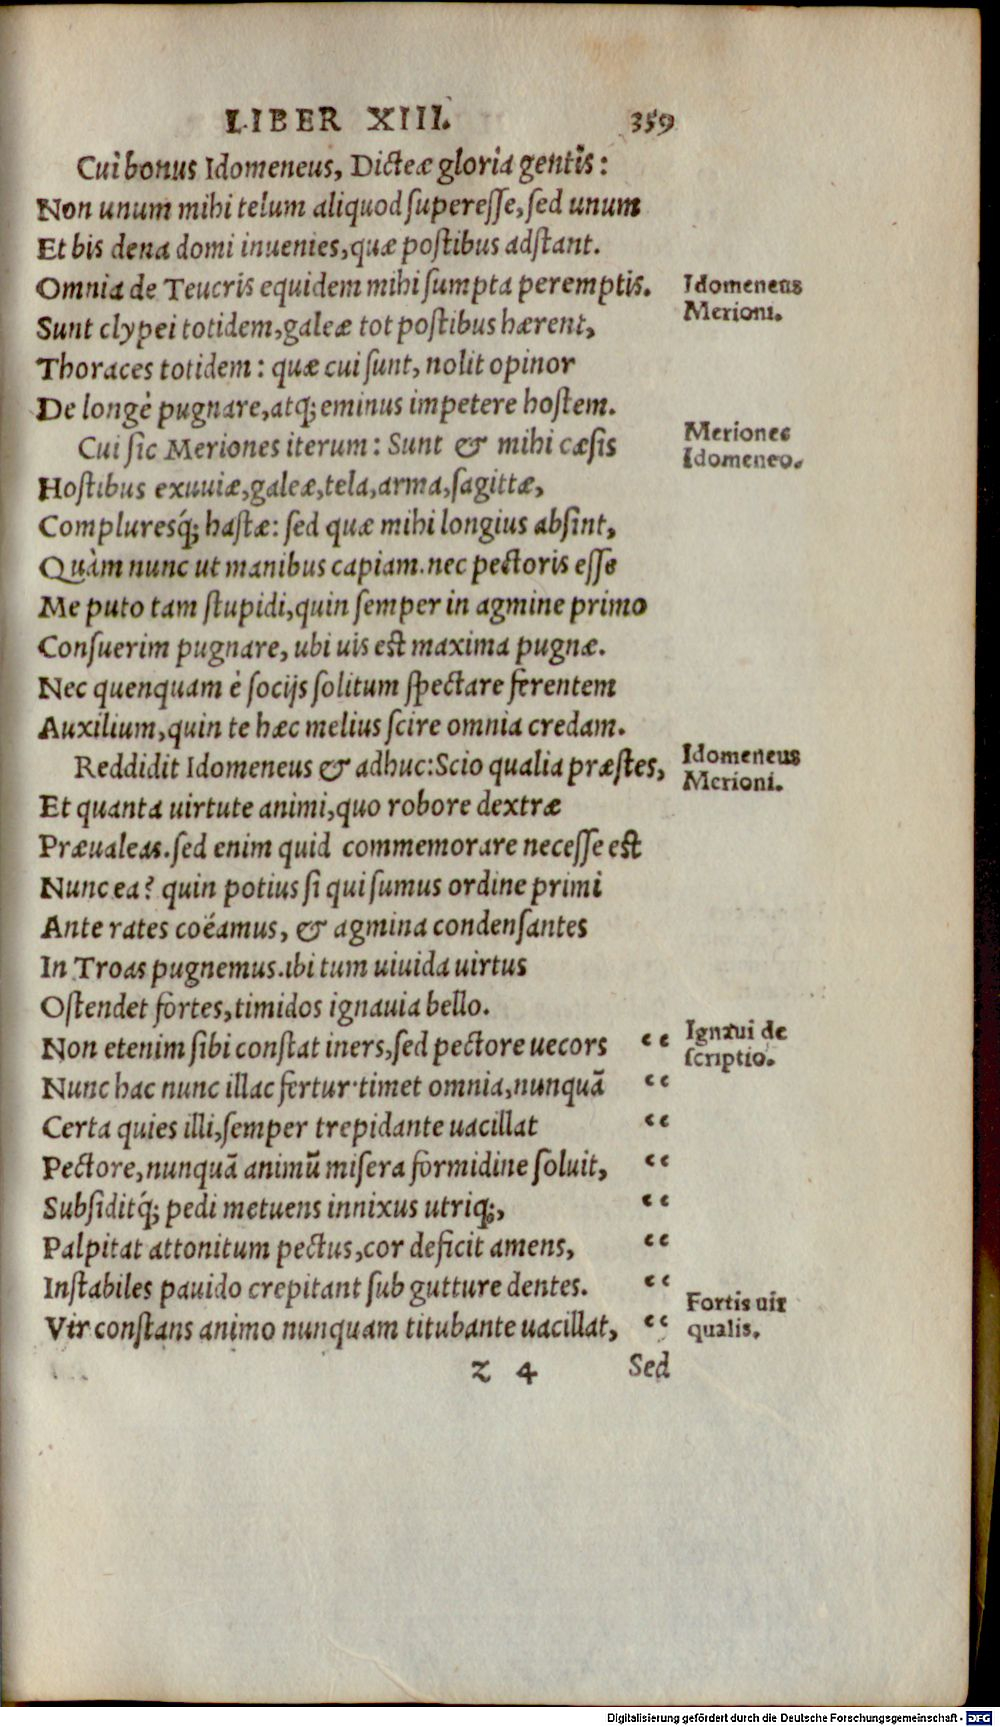 LIBER XIII. 359
Cui bonus Idomeneus, Dicteæ gloria gentis:
Non unum mihi telum aliquod superesse, sed unum
Et bis dena domi inuenies, quæ postibus adstant.
Omnia de Teucris equidem mihi sumpta peremptis.
Idomeneus
Merioni.
Sunt clypei totidem, galeæ tot postibus hærent,
Thoraces totidem: quæ cui sunt, nolit opinor
De longè pugnare, atq; eminus impetere hostem.
Cui sic Meriones iterum: Sunt & mihi cæsis
Meriones
Idomeneo.
Hostibus exuuiæ, galeæ, tela, arma, sagittæ,
Compluresq́; hastæ: sed quæ mihi longius absint,
Quàm nunc ut manibus capiam. nec pectoris esse
Me puto tam stupidi, quin semper in agmine primo
Consuerim pugnare, ubi uis est maxima pugnæ.
Nec quenquam è socijs solitum spectare ferentem
Auxilium, quin te hæc melius scire omnia credam.
Reddidit Idomeneus & adhuc: Scio qualia præstes,
Idomeneus
Merioni.
Et quanta uirtute animi, quo robore dextræ
Præualeas. sed enim quid commemorare necesse est
Nunc ea? quin potius si qui sumus ordine primi
Ante rates coëamus, & agmina condensantes
In Troas pugnemus. ibi tum uiuida uirtus
Ostendet fortes, timidos ignauia bello.
Non etenim sibi constat iners, sed pectore uecors “
Ignaui de
scriptio.
Nunc hac nunc illac fertur· timet omnia, nunquā “
Certa quies illi, semper trepidante uacillat “
Pectore, nunquā animū misera formidine soluit, “
Subsiditq́; pedi metuens innixus utriq;, “
Palpitat attonitum pectus, cor deficit amens, “
Instabiles pauido crepitant sub gutture dentes. “
Vir constans animo nunquam titubante uacillat, “
Fortis uir
qualis.
z 4 Sed
Digitalisierung gefördert durch die Deutsche Forschungsgemeinschaft - DFG